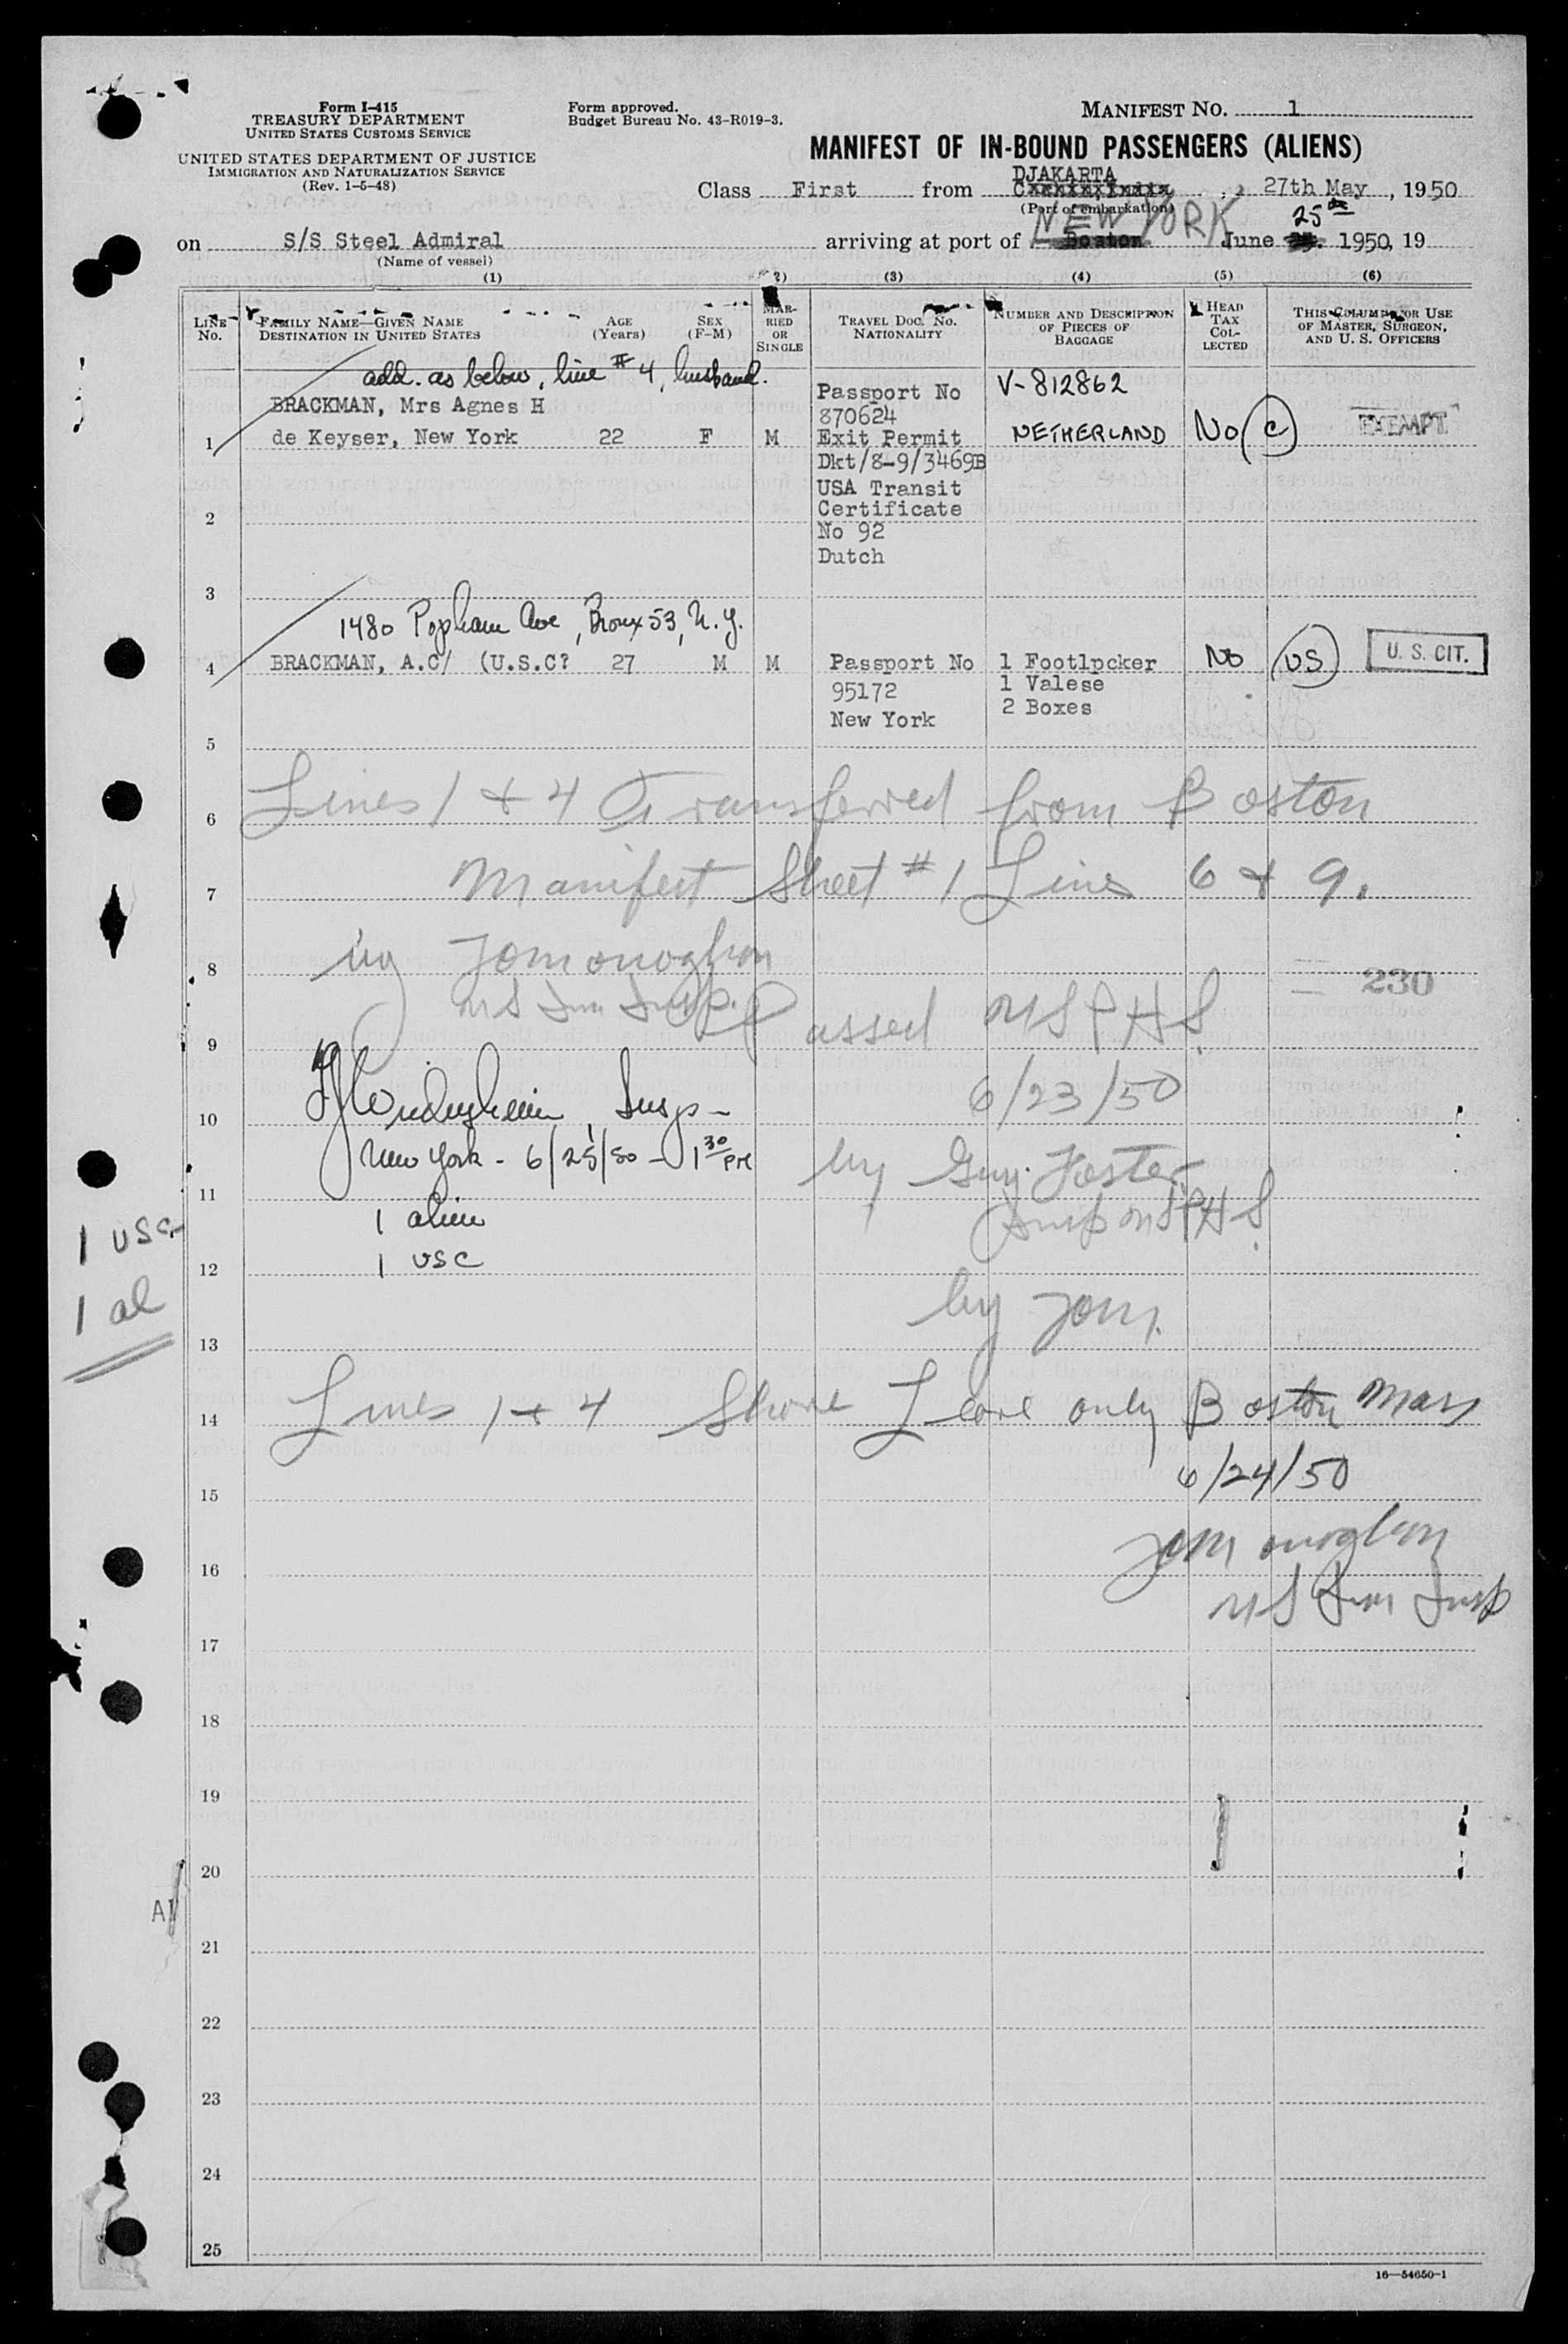 Form I-415
TREASURY DEPARTMENT
UNITED STATES CUSTOMS SERVICE
UNITED STATES DEPARTMENT OF JUSTICE
IMMIGRATION AND NATURALIZATION SERVICE
(Rev. 1-5-48)
Form approved.
Budget Bureau No. 43-R019-3.
MANIFEST NO. 1
MANIFEST OF IN-BOUND PASSENGERS (ALIENS)
DJAKARTA
Class First from , 27th May, 1950
(Port of embarkation)
NEW YORK 25th
on S/S Steel Admiral arriving at port of Boston June 1950, 19
(Name of vessel)
(1) (2) (3) (4) (5) (6)
LINE No.
FAMILY NAME—GIVEN NAME
DESTINATION IN UNITED STATES
AGE (Years)
SEX (F-M)
MARRIED OR SINGLE
TRAVEL DOC. NO.
NATIONALITY
NUMBER AND DESCRIPTION OF PIECES OF BAGGAGE
HEAD TAX COLLECTED
THIS COLUMN FOR USE OF MASTER, SURGEON, AND U. S. OFFICERS
add. as below, line # 4, husband.
BRACKMAN, Mrs Agnes H
1 de Keyser, New York 22 F M
Passport No
870624
Exit Permit
Dkt/8-9/3469B
USA Transit
Certificate
No 92
Dutch
V-812862
NETHERLAND No C EXEMPT
2
3
1480 Popham Ave, Bronx 53, N.Y.
4 BRACKMAN, A.C/ (U.S.C? 27 M M
Passport No
95172
New York
1 Footlpcker
1 Valese
2 Boxes
No US U. S. CIT.
5
6 Lines 1 & 4 Transferred from Boston
7 Manifest Sheet #1 Lines 6 & 9.
8 by
US Imm Insp.
230
9 Passed USPHS.
10 Insp-
6/23/50
New York - 6/25/50 - 1 30 PM
by Guy Foster
11
1 alien
Insp USPHS.
1 USC
12
1 USC
1 al
by
13
14 Lines 1 & 4 Shore Leave only Boston Mass
6/24/50
15
16
US Imm Insp
17
18
19
20
21
22
23
24
25
16—54650-1